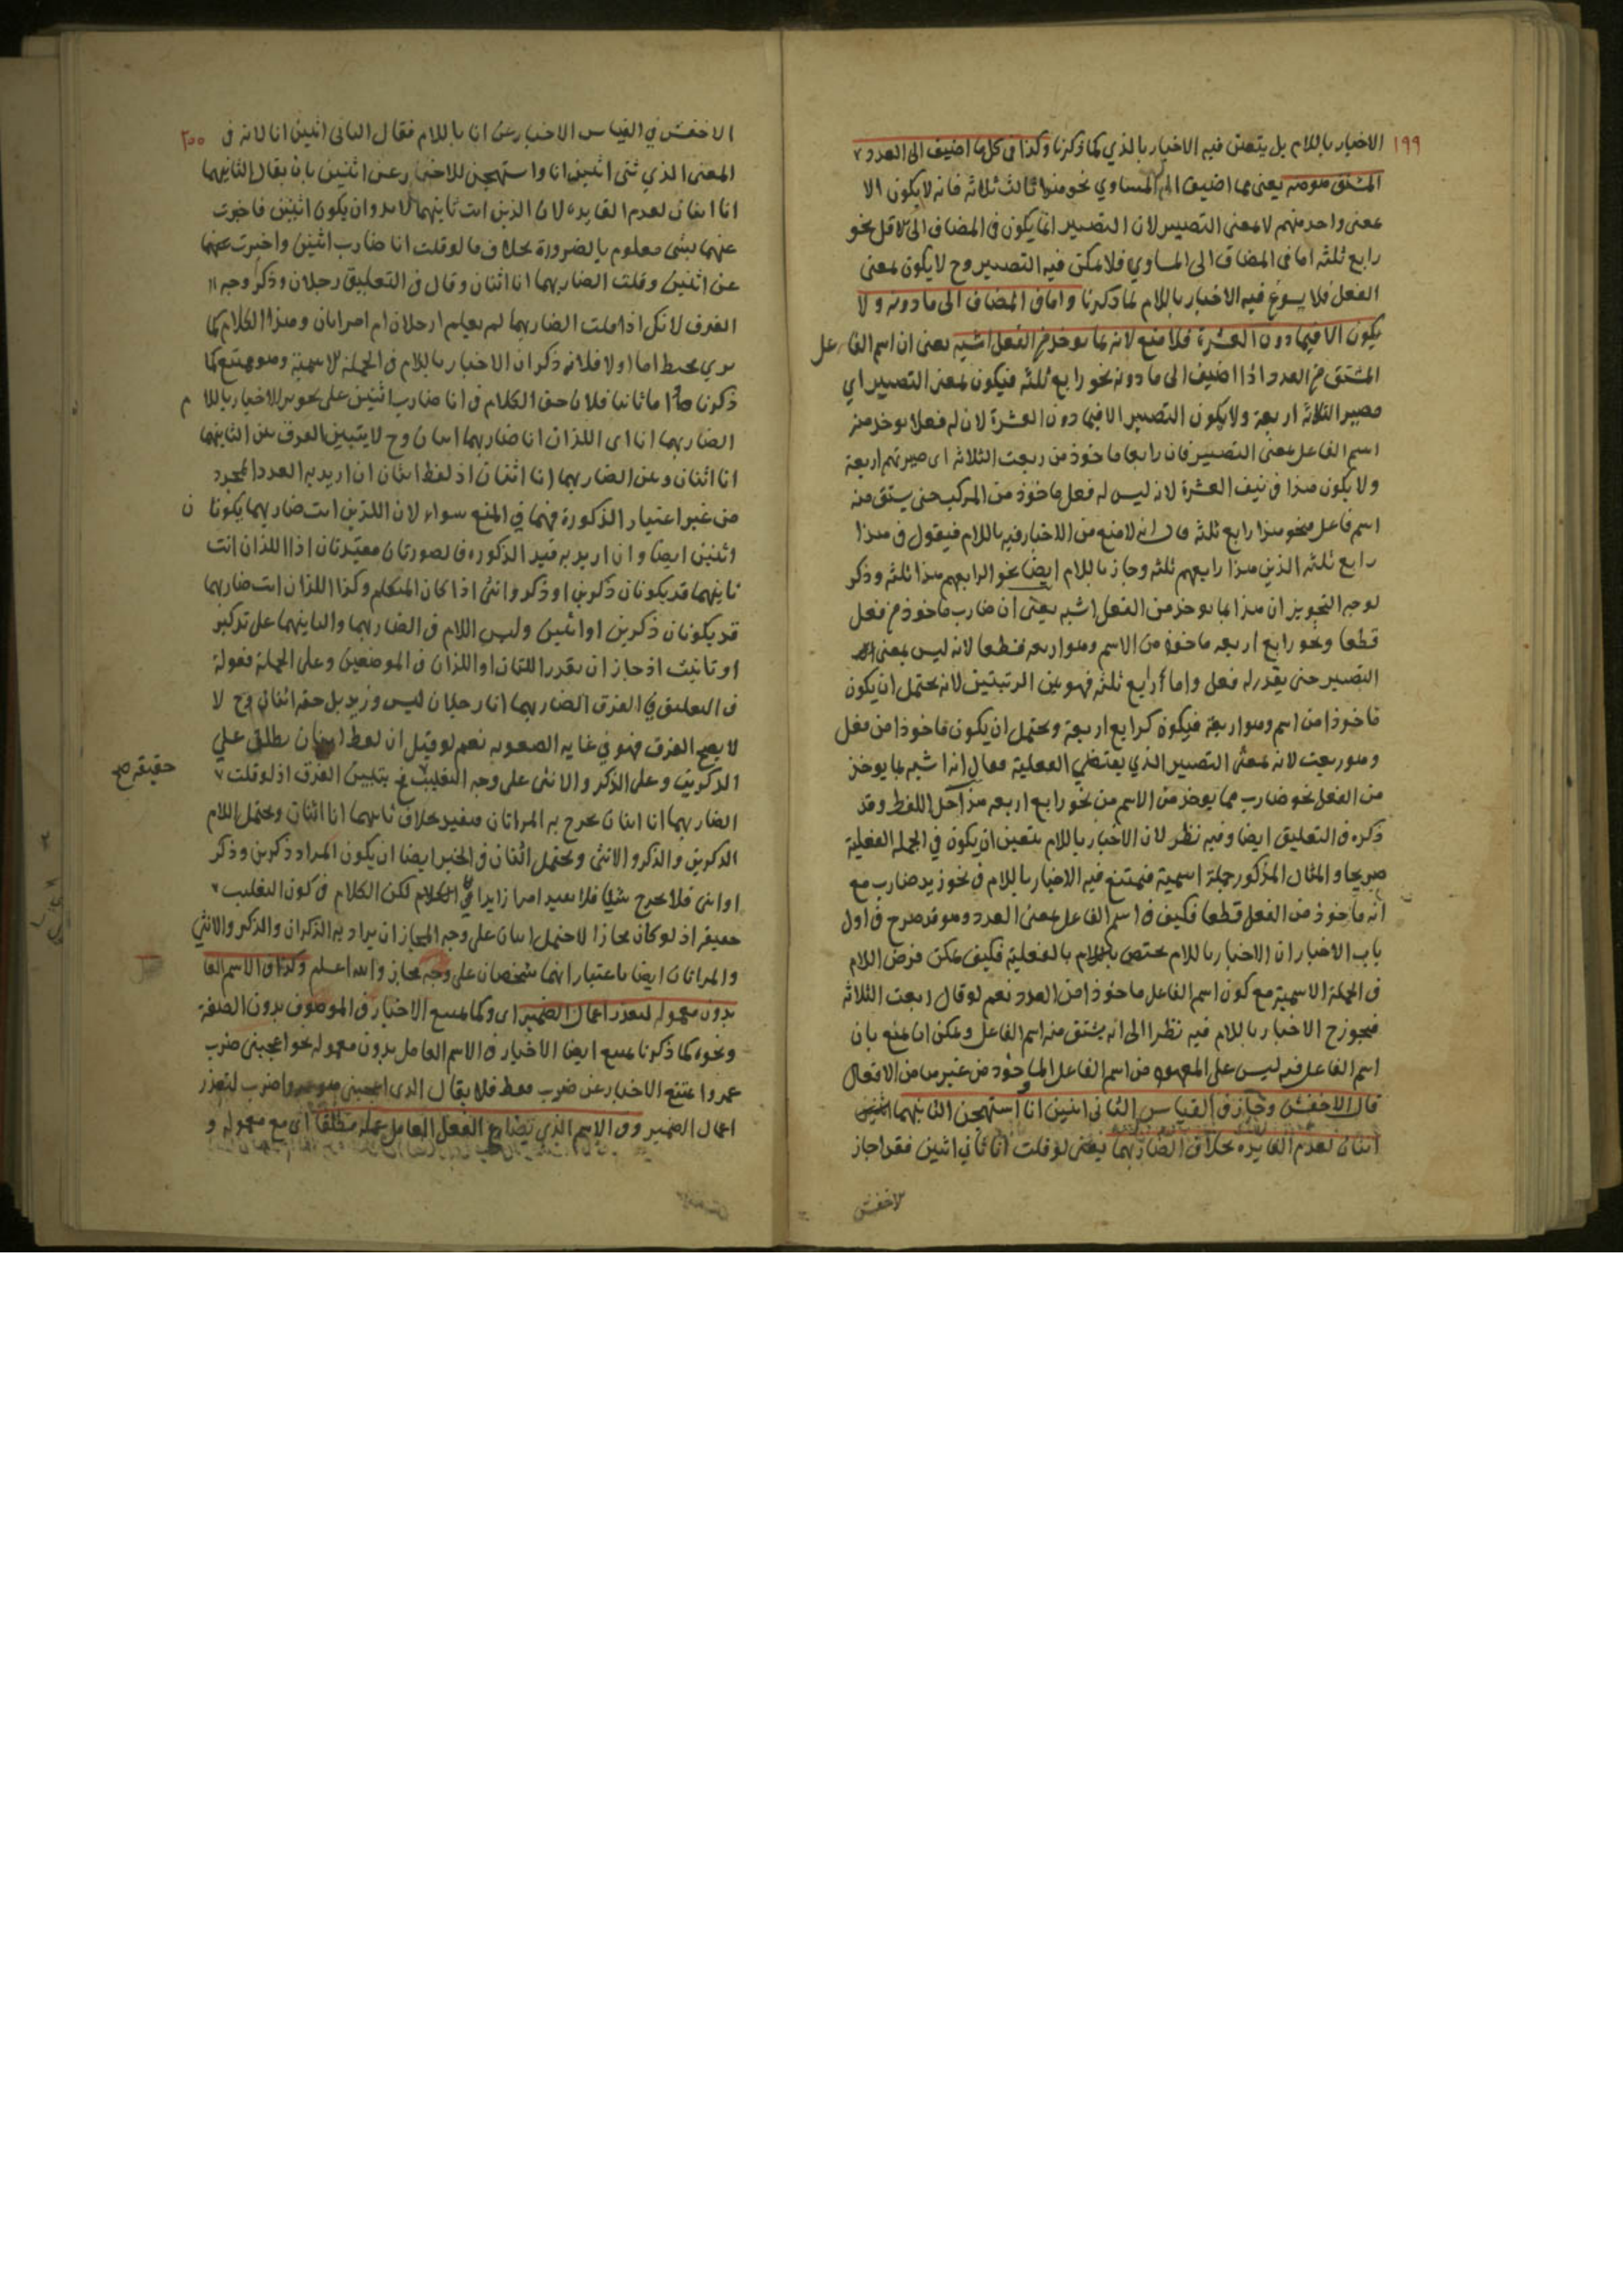 ١٩٩
الاخبار باللام بل يتعين فيه الاخبار بالذي كما ذكرنا وكذا في كل ما اضيف الى العدد
المشتق هو منه يعني مما اضيف الى المساوي نحو هذا ثالث ثلاثة فانه لا يكون الا
بمعنى واحد منهم لا بمعنى التصيير لان التصيير انما يكون في المضاف الى الاقل نحو
رابع ثلثه اما في المضاف الى المساوي فلا يمكن فيه التصيير وح لا يكون بمعنى
الفعل فلا يسوغ فيه الاخبار باللام لما ذكرنا واما في المضاف الى ما دونه ولا
يكون الا فيما دون العشرة فلا منع لانه بما يوخذ من الفعل اشبه يعني ان اسم الفاعل
المشتق من العدد اذا اضيف الى ما دونه نحو رابع ثلثه فيكون بمعنى التصيير اي
مصير الثلاثة اربعة ولا يكون التصيير الا فيما دون العشرة لان له فعلا يوخذ منه
اسم الفاعل بمعنى التصيير فان رابعا ماخوذ من ربعت الثلاثة اى صيرتهم اربعة
ولا يكون هذا في نيف العشرة لانه ليس له فعل ماخوذ من المركب حتى يشتق منه
اسم فاعل فنحو هذا رابع ثلثة قال انه لا منع من الاخبار فيه باللام فيقول في هذا
رابع ثلثه الذين هذا رابعهم ثلثه وجاز باللام ايضا نحو الرابعهم هذا ثلثه وذكر
لوجه التجويز ان هذا بما يوخذ من الفعل اشبه يعني ان ضارب ماخوذ من فعل
قطعا ونحو رابع اربعه ماخوذ من الاسم وهو اربعه قطعا لانه ليس بمعنى
التصيير حتى يقدر له فعل واما رابع ثلثه فهو بين الرتبتين لانه يحتمل ان يكون
ماخوذا من اسم وهو اربعة فيكون كرابع اربعة ويحتمل ان يكون ماخوذا من فعل
وهو ربعت لانه بمعنى التصيير الذي يقتضي الفعلية فقال انه اشبه بما يوخذ
من الفعل نحو ضارب مما يوخذ من الاسم من نحو رابع اربعه هذا حل اللفظ وقد
ذكره في التعليق ايضا وفيه نظر لان الاخبار باللام يتعين ان يكون في الجمله الفعلية
صريحا والمثال المذكور جملة اسمية فيمتنع فيه الاخبار باللام في نحو زيد ضارب مع
انه ماخوذ من الفعل قطعا فكيف في اسم الفاعل بمعنى العدد وهو قد صرح في اول
باب الاخبار ان الاخبار باللام مختص بالفعلية فكيف يمكن فرض اللام
في الجملة الاسمية مع كون اسم الفاعل ماخوذا من العدد نعم لو قال ربعت الثلاثة
فيجوز ح الاخبار باللام فيه نظرا الى انه يشتق منه اسم الفاعل ويمكن ان يمنع بان
اسم الفاعل فيه ليس على المعهود من اسم الفاعل الماخوذ من غير ما من الافعال
قال الاخفش وجاز في القياس الثاني اثنين انا واستهجن الثانيهما
اثنان لعدم الفايده بخلاف الضاربهما يعني لو قلت انا ثاني اثنين فقد اجاز
لاخفش
٢٠٠
الاخفش في القياس الاخبار عن انا باللام فقال الثاني اثنين انا لانه في
المعنى الذي ثنى اثنين انا واستهجن للاخبار عن اثنين بان يقال الثانيهما
انا اثنان لعدم الفايده لان الذين انت ثانيهما لا بد وان يكون اثنين فاخبرت
عنهما بشى معلوم بالضرورة بخلاف ما لو قلت انا ضارب اثنين واخبرت عنهما
عن اثنين وقلت الضاربهما انا اثنان وقال في التعليق رجلان وذكر وجه
الفرق لانك اذا قلت الضاربهما لم يعلم ارجلان ام امراتان وهذا الكلام كما
ترى مخبط اما اولا فلانه ذكر ان الاخبار باللام في الجملة الاسمية وهو ممتنع كما
ذكرنا واما ثانيا فلان حق الكلام في انا ضارب اثنين على تجويز الاخبار باللام
الضاربهما انا اى اللذان انا ضاربهما اثنان وح لا يتبين الفرق بين الثانيهما
انا اثنان وعن الضاربهما انا اثنان اذ لفظ اثنان ان اريد به العدد المجرد
من غير اعتبار الذكورة فهما في المنع سواء لان اللذين انت ضاربهما يكونان
اثنين ايضا وان اريد به قيد الذكوره فالصورتان مفيدتان اذ اللذان انت
ثانيهما قد يكونان ذكرين او ذكر وانثى اذا كان المتكلم وكذا اللذان انت ضاربهما
قد يكونان ذكرين او انثيين وليس اللام في الضاربهما والثانيهما على تذكير
او تانيث اذ جاز ان يقدر اللتان او اللذان في الموضعين وعلى الجملة فقوله
في التعليق في الفرق الضاربهما انا رجلان ليس وزيد بل حقه اثنان وح لا
لا يصح الفرق فهو في غاية الصعوبة نعم لو قيل ان لفظ اثنان يطلق على
الذكرين وعلى الذكر والانثى على وجه التغليب فح يتبين الفرق اذ لو قلت
حقيقة صح
الضاربهما انا اثنان يخرج به المراتان فيفيد بخلاف ثانيهما انا اثنان ويحتمل اللام
الذكرين والذكر والانثى ويحتمل اثنان في الخبر ايضا ان يكون المراد ذكرين وذكر
او انثى فلا يخرج شيئا فلا يفيد امرا زايدا في الكلام لكن الكلام في كون التغليب
حقيقة اذ لو كان مجازا لاحتمل اثنان على وجه المجاز ان يراد به الذكران والذكر والانثي
والمراتان ايضا باعتبار انهما شخصان على وجه مجاز والله اعلم وكذا في الاسم الفا
بدون معموله لتعذر اعمال الضمير اى وكما يمتنع الاخبار في الموصوف بدون الصفة
ونحوه كما ذكرنا يمتنع ايضا الاخبار في الاسم العامل بدون معموله نحو اعجبني ضرب
عمروا يمتنع الاخبار عن ضرب فقط فلا يقال الذي اعجبني هو عمروا ضرب لتعذر
اعمال الضمير وفي الاسم الذي يضارع الفعل العامل عمله مطلقا اى مع معموله و